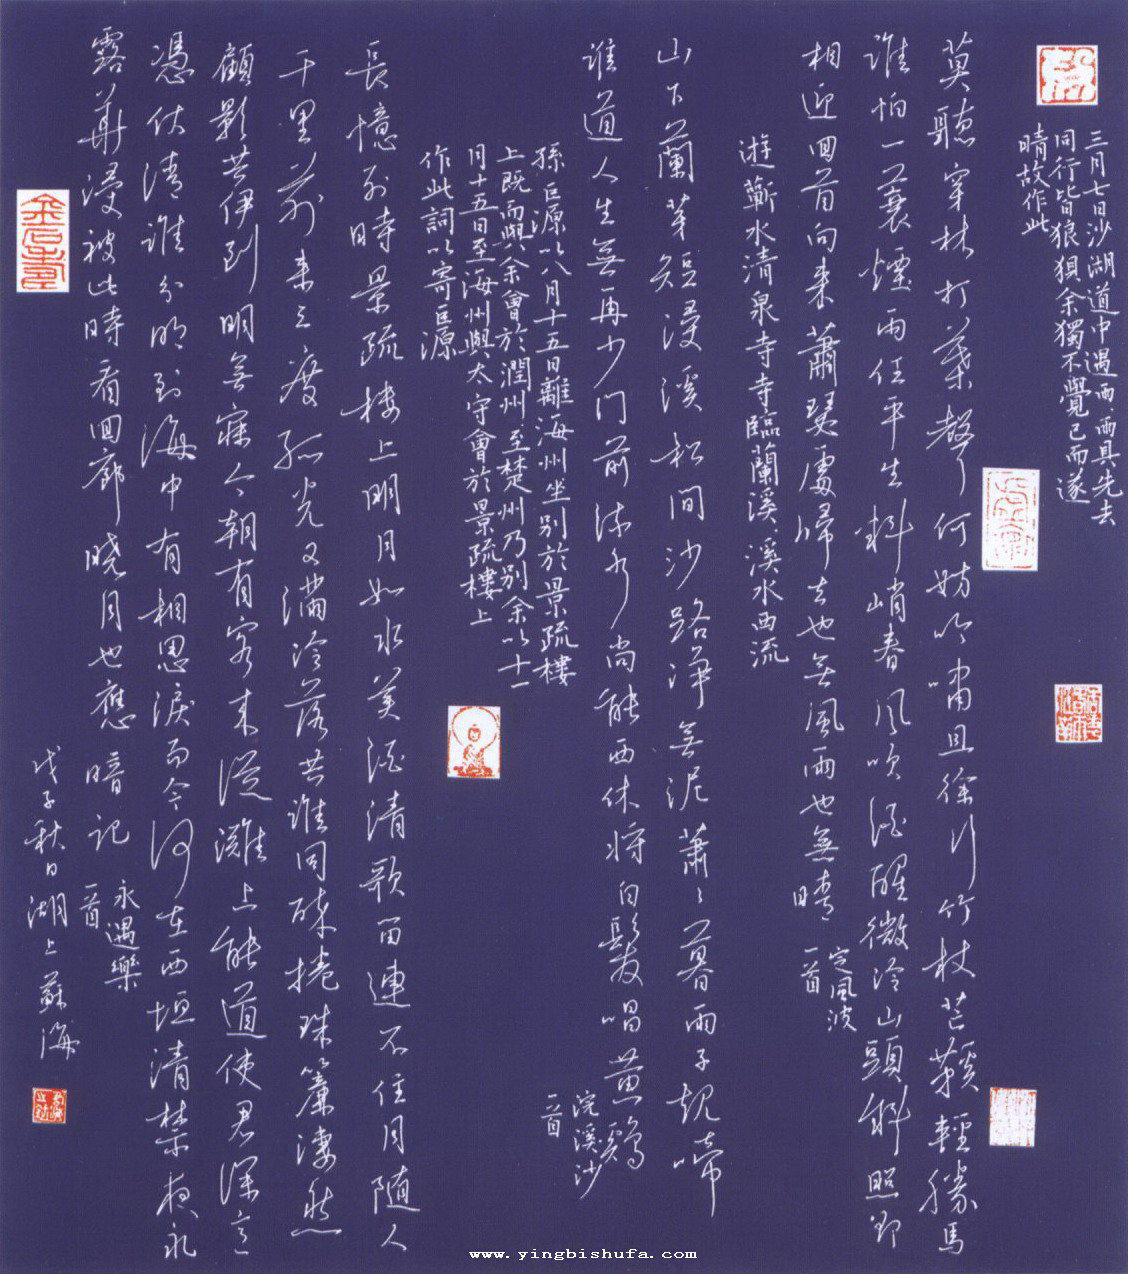 三月七日沙湖道中遇雨雨具先去
同行皆狼狽余獨不覺已而遂
晴故作此
莫聽穿林打葉聲何妨吟嘯且徐行竹杖芒鞋輕勝馬
誰怕一蓑煙雨任平生料峭春風吹酒醒微冷山頭斜照卻
相迎回首向來蕭瑟處歸去也無風雨也無晴
定風波
一首
遊蘄水清泉寺寺臨蘭溪溪水西流
山下蘭芽短浸溪松間沙路淨無泥蕭〻暮雨子規啼
誰道人生無再少門前流水尚能西休將白髮唱黃鷄
浣溪沙
一首
孫巨源以八月十五日離海州坐別於景疏樓
上既而與余會於潤州至楚州乃別余以十一
月十五日至海州與太守會於景疏樓上
作此詞以寄巨源
長憶別時景疏樓上明月如水美酒清歌留連不住月隨人
千里別來三度孤光又滿冷落共誰同醉捲珠簾淒然
顧影共伊到明無寐今朝有客來從濉上能道使君深意
憑仗清淮分明到海中有相思淚而今何在西垣清禁夜永
露華浸被此時看回廊曉月也應暗記
永遇樂
一首
戊子秋日湖上蘇海
www.yingbishufa.com